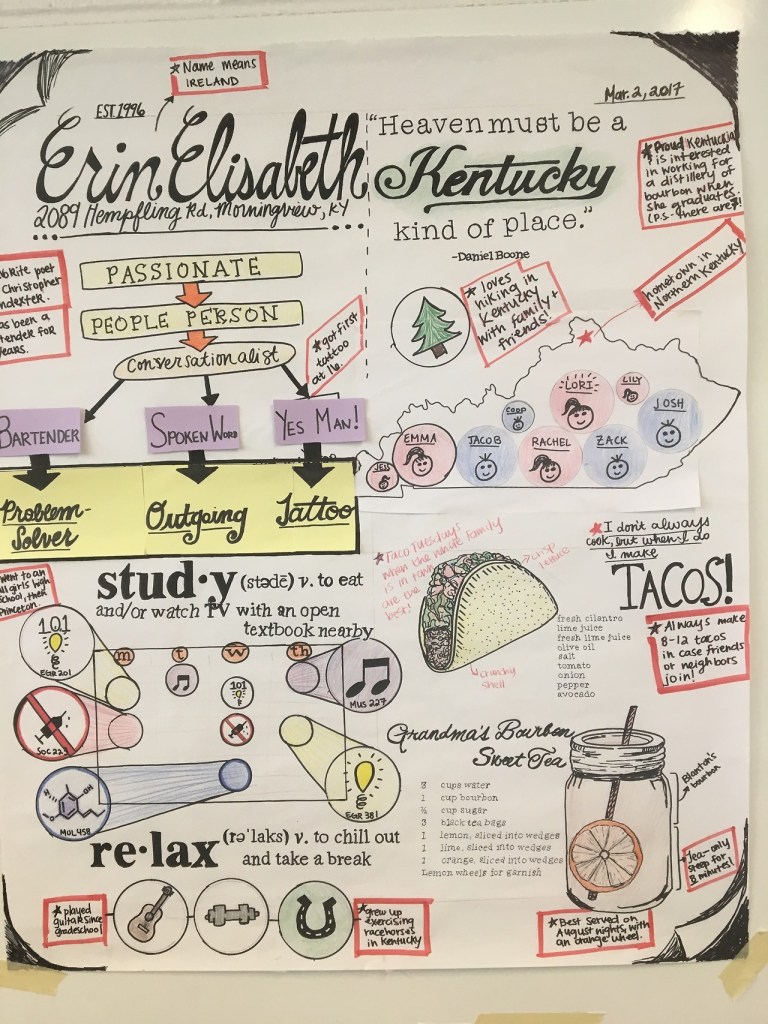 ★Name means
IRELAND
EST. 1996
Mar. 2, 2017
Erin Elisabeth
2089 Hempfling Rd, Morningview, KY
"Heaven must be a
Kentucky
kind of place."
-Daniel Boone
★Proud
is interested
in working for
a distillery of
bourbon when
she graduates.
(P.S. there are
hometown in
Northern Kentucky
poet
Christopher
ndexter.
as been a
tender for
years.
PASSIONATE
PEOPLE PERSON
Conversationalist
★got first
tattoo
at 16.
★loves
hiking in
Kentucky
with family +
friends!
BARTENDER
SPOKEN WORD
YES MAN!
Problem-
Solver
Outgoing
Tattoo
LORI
LILY
COOP
JOSH
EMMA
JACOB
RACHEL
ZACK
JESS
went to an
all girls high
school, then
Princeton.
stud·y (stədē) v. to eat
and/or watch TV with an open
textbook nearby
101
EGR 201
m
t
w
th
101
MUS 227
SOC 223
MOL 458
EGR 381
re·lax (rə'laks) v. to chill out
and take a break
★played
guitar since
gradeschool
★grew up
exercising
racehorses
in Kentucky
★Taco Tuesdays
when the whole family
is in town
are the
best!
crisp
lettuce
crunchy
shell
★I don't always
cook, but when I do
I make
TACOS!
fresh cilantro
lime juice
fresh lime juice
olive oil
salt
tomato
onion
pepper
avocado
★Always make
8-12 tacos
in case friends
or neighbors
join!
Grandma's Bourbon
Sweet Tea
8 cups water
1 cup bourbon
cup sugar
3 black tea bags
1 lemon, sliced into wedges
1 lime, sliced into wedges
1 orange, sliced into wedges
Lemon wheels for garnish
Blanton's
bourbon
Tea-only
steep for
8 minutes!
★Best served on
August nights, with
an orange wheel.